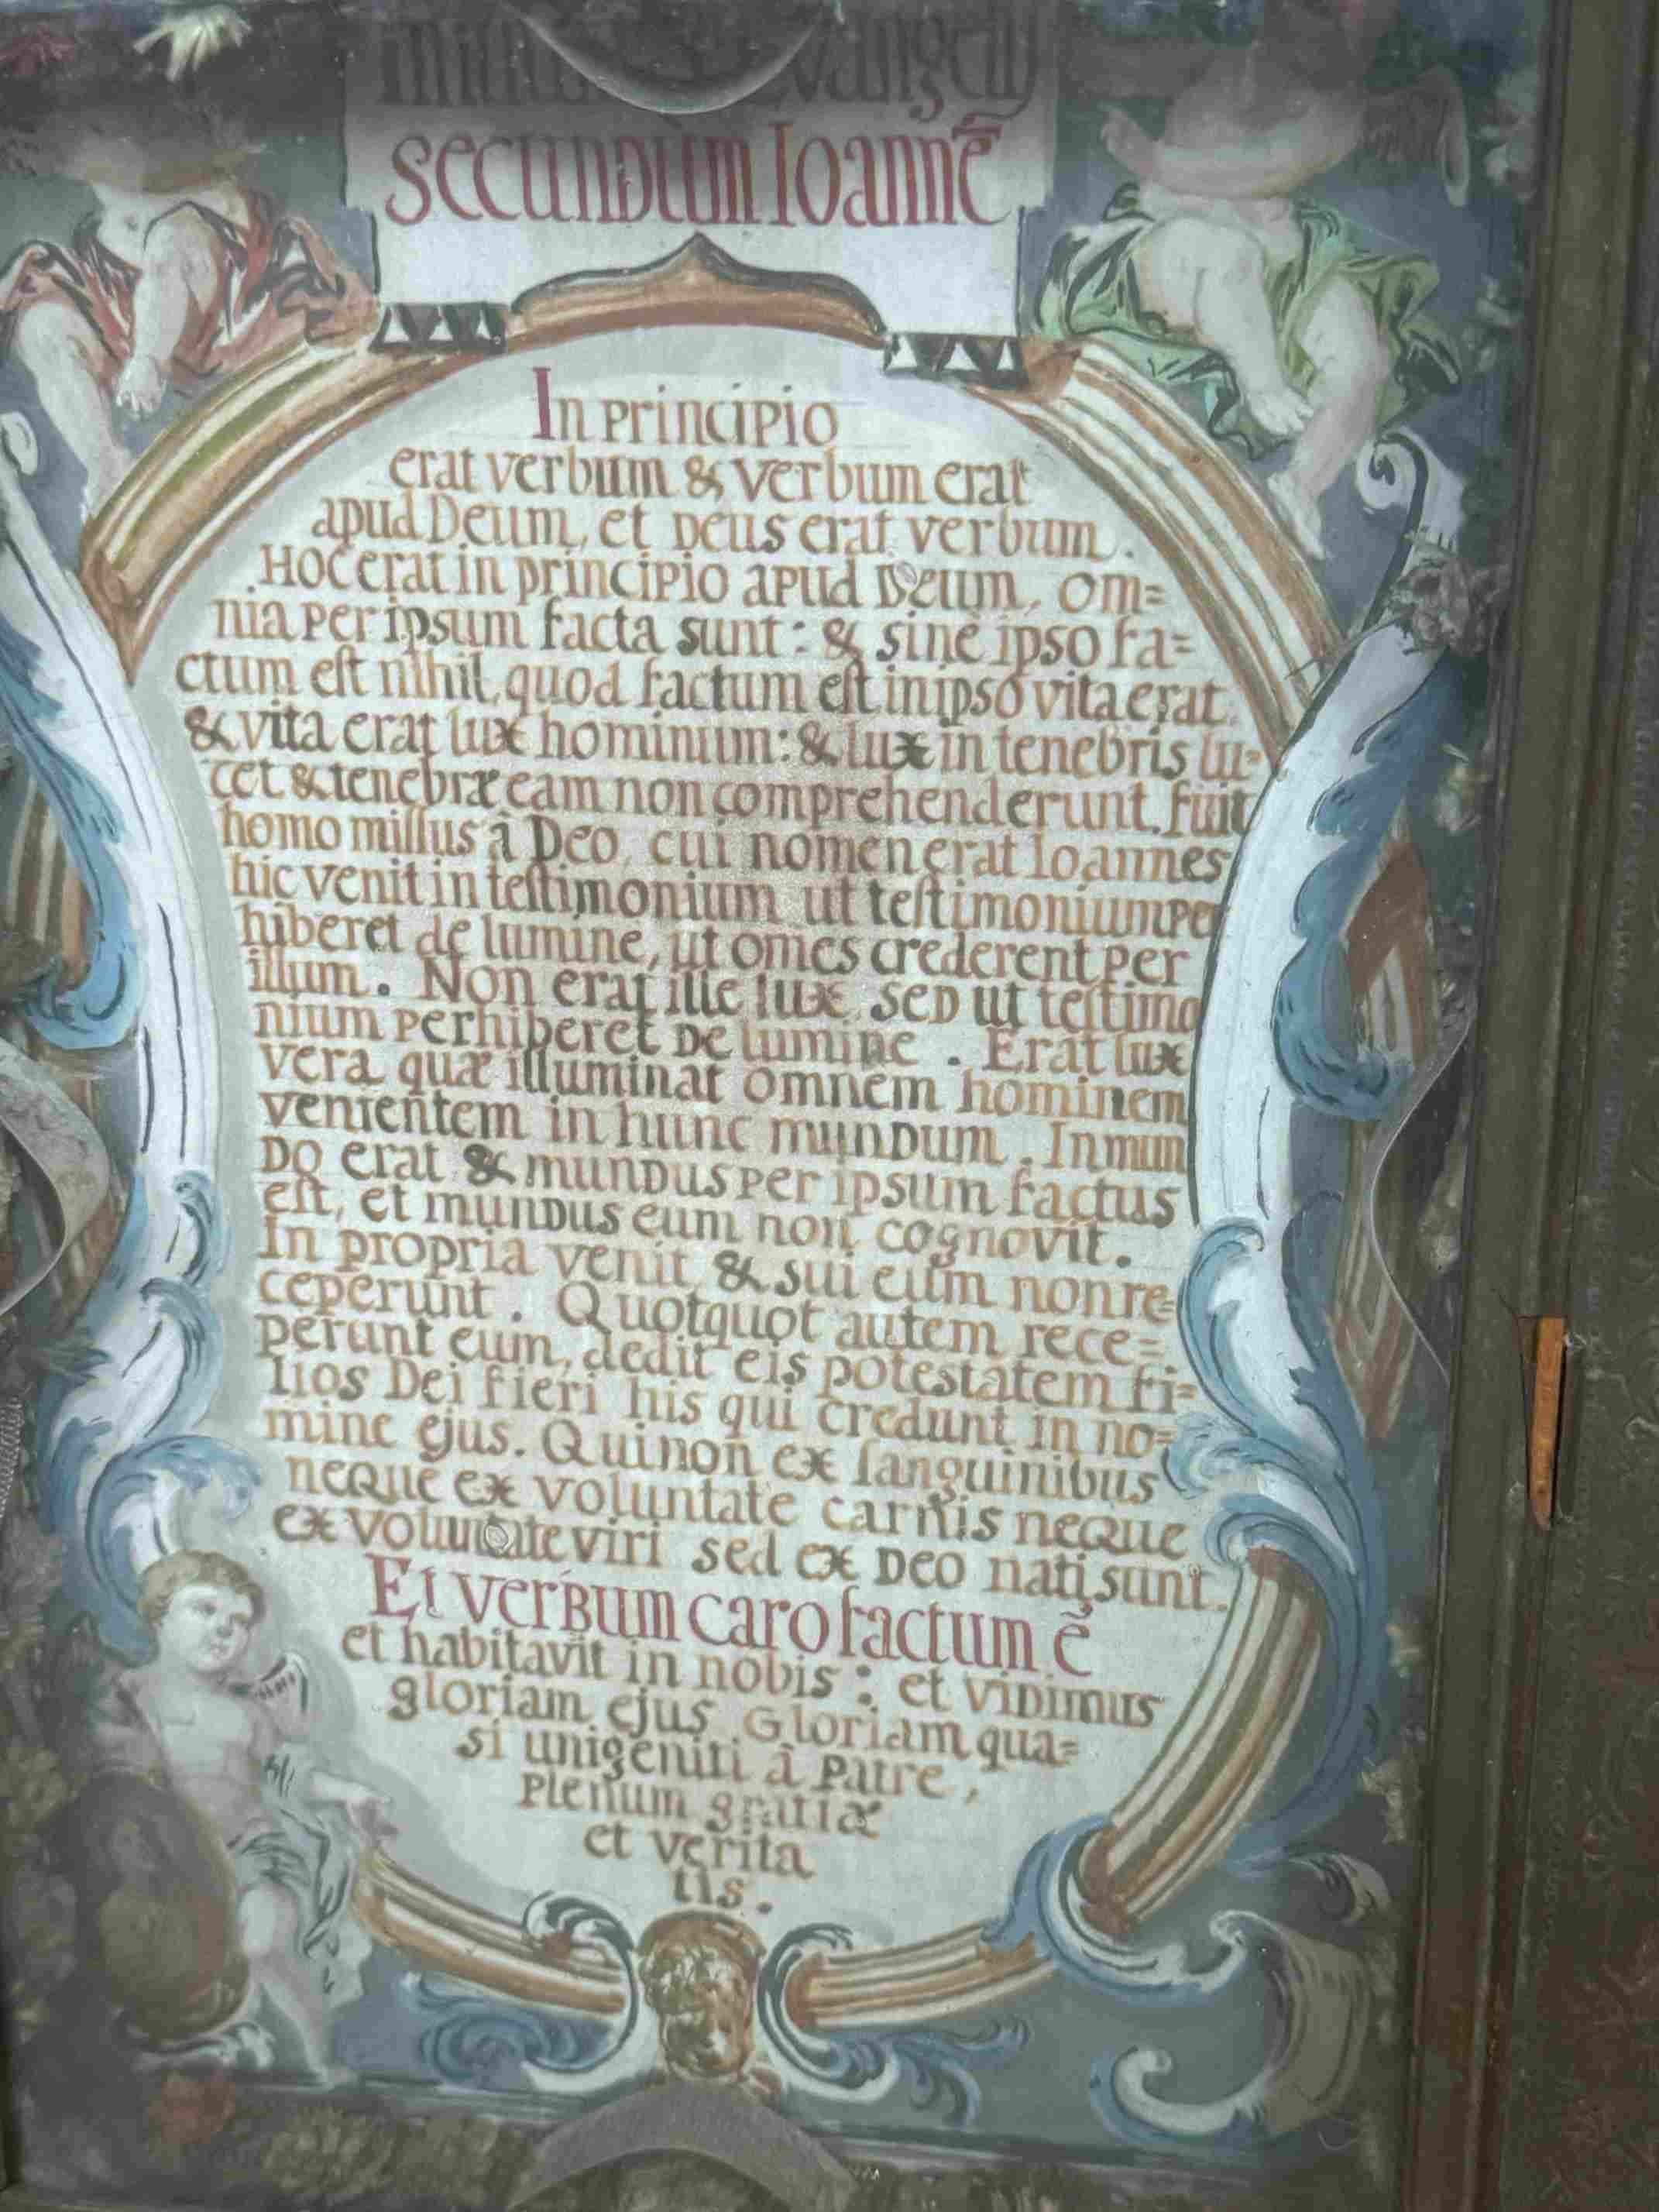 Initium S. Evangelij
secundum Ioannē
In principio
erat verbum & verbum erat
apud Deum, et Deus erat verbum.
Hoc erat in principio apud Deum, om=
nia per ipsum facta sunt: & sine ipso fa=
ctum est nihil, quod factum est in ipso vita erat,
& vita erat lux hominum: & lux in tenebris lu=
cet & tenebræ eam non comprehenderunt. Fuit
homo missus â Deo, cui nomen erat Ioannes
hic venit in testimonium ut testimonium per
hiberet de lumine, ut omes crederent per
illum. Non erat ille lux, sed ut testimo
nium perhiberet de lumine. Erat lux
vera quæ illuminat omnem hominem
venientem in hunc mundum. In mun
do erat & mundus per ipsum factus
est, et mundus eum non cognovit.
In propria venit & sui eum non re=
ceperunt. Quotquot autem rece=
perunt eum, dedit eis potestatem fi=
lios Dei fieri his qui credunt in no=
mine ejus. Qui non ex sanguinibus
neque ex voluntate carnis neque
ex voluntate viri sed ex Deo nati sunt.
Et verbum caro factum ē
et habitavit in nobis: et vidimus
gloriam ejus Gloriam qua=
si unigeniti â Patre,
Plenum gratiæ
et verita
tis.